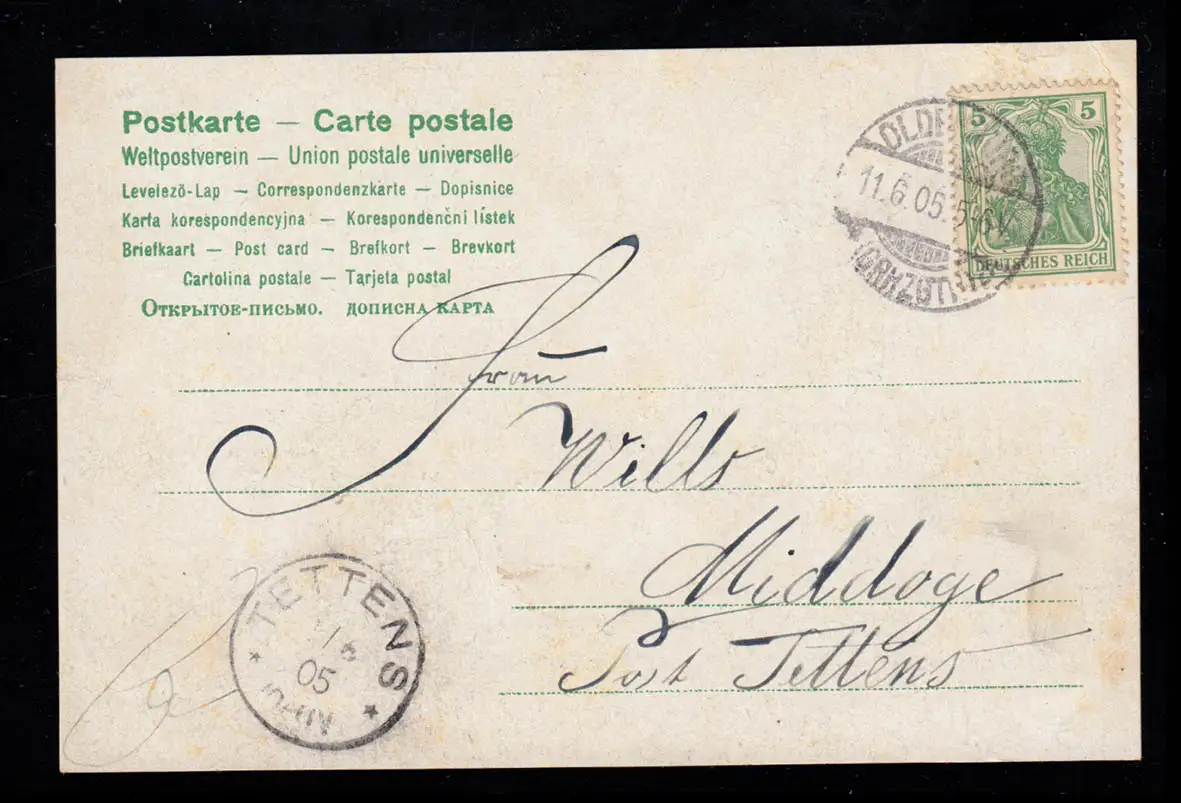 Postkarte — Carte postale
Weltpostverein — Union postale universelle
Levelező-Lap — Correspondenzkarte — Dopisnice
Karta korespondencyjna — Korespondenční lístek
Briefkaart — Post card — Brefkort — Brevkort
Cartolina postale — Tarjeta postal
Открытое-письмо. дописна карта
5 5
DEUTSCHES REICH
11.6.05. 5-6V.
Frau
Wills
Middoge
Post Tettens
TETTENS
05